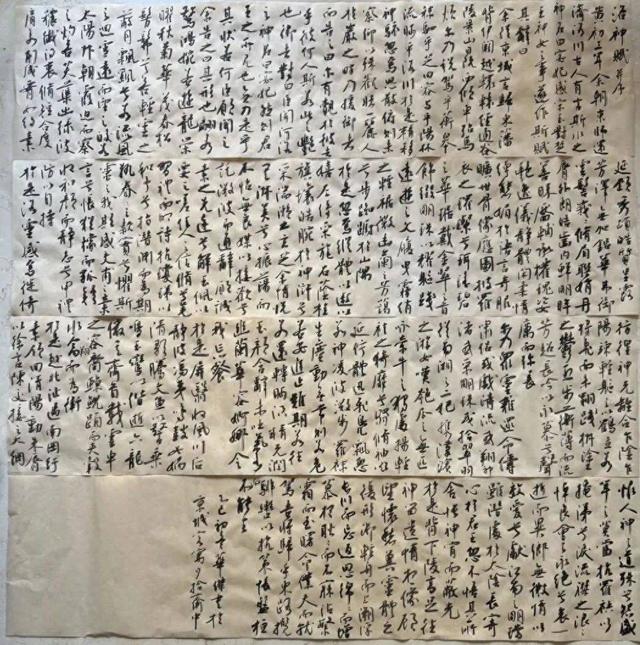 洛神賦并序
黃初三年余朝京師還
濟洛川古人有言斯水
之神名曰宓妃感宋玉對楚
王神女之事遂作斯賦
其辭曰
余從京城言歸東藩
背伊闕越轘轅經通谷
陵景山日既西傾車殆馬
煩爾乃稅駕乎蘅皋
秣駟乎芝田容與乎陽林
流眄乎洛川於是精移
神駭忽焉思散俯則未
察仰以殊觀睹一麗人
於巖之畔乃援御者
而告之曰爾有覿於彼
者乎彼何人斯若此之艷
也御者對曰臣聞河洛
之神名曰宓妃然則君
王之所見也無乃是乎
其狀若何臣願聞之
余告之曰其形也翩若
驚鴻婉若遊龍榮
曜秋菊華茂春松
髣髴兮若輕雲之
蔽月飄颻兮若流風
之迴雪遠而望之皎若
太陽升朝霞迫而察
之灼若芙蕖出淥波
穠纖得衷修短合度
肩若削成腰如約素
延頸秀項皓質呈露
芳澤無加鉛華弗御
雲髻峨峨修眉聯娟丹
脣外朗皓齒內鮮明眸
善睞靨輔承權瓌姿
艷逸儀靜體閑柔情
綽態媚於語言奇服
曠世骨像應圖披羅
衣之璀粲兮珥瑤碧
之華琚戴金翠之首
飾綴明珠以耀軀踐
遠遊之文履曳霧綃
之輕裾微幽蘭之芳藹
兮步踟躕於山隅
於是忽焉縱體以遨以
嬉左倚采旄右蔭桂
旗攘皓腕於神滸兮
采湍瀨之玄芝余情悅
其淑美兮心振蕩而
不怡無良媒以接歡兮
託微波而通辭願誠
素之先達兮解玉佩以
要之嗟佳人之信修羌習
禮而明詩抗瓊珶以
和予兮指潛淵而為期
執眷之款實兮懼斯
靈之我欺感交甫之棄
言兮悵猶豫而狐疑
收和顏而靜志兮申禮
防以自持
於是洛靈感焉徙倚
彷徨神光離合乍陰乍
陽竦輕軀以鶴立若
將飛而未翔踐椒塗
之郁烈步蘅薄而流
芳超長吟以永慕兮聲
哀厲而彌長
爾乃眾靈雜遝命儔
嘯侶或戲清流或翔神
渚或采明珠或拾翠羽
從南湘之二妃攜漢濱
之游女嘆匏瓜之無匹
兮詠牽牛之獨處揚輕
袿之猗靡兮翳修袖以
延佇體迅飛鳧飄忽
若神凌波微步羅襪
生塵動無常則若危
若安進止難期若往
若還轉眄流精光潤
玉顏含辭未吐氣若
幽蘭華容婀娜令
我忘餐
於是屏翳收風川后
靜波馮夷鳴鼓女媧
清歌騰文魚以警乘
鳴玉鸞以偕逝六龍
儼其齊首載雲車
之容裔鯨鯢踴而夾轂
水禽翔而為衛
於是越北沚過南岡紆
素領迴清陽動朱脣
以徐言陳交接之大綱
恨人神之道殊兮怨盛
年之莫當抗羅袂以
掩涕兮淚流襟之浪浪
悼良會之永絕兮哀一
逝而異鄉無微情以
效愛兮獻江南之明璫
雖潛處於太陰長寄
心於君王忽不悟其所
舍悵神宵而蔽光
於是背下陵高足往
神留遺情想像顧
望懷愁冀靈體之
復形御輕舟而上溯浮
長川而忘返思綿綿而增
慕夜耿耿而不寐沾繁
霜而至曙命僕夫而就
駕吾將歸乎東路攬
騑轡以抗策悵盤桓
而不能去
乙巳初冬華傑書於
京城